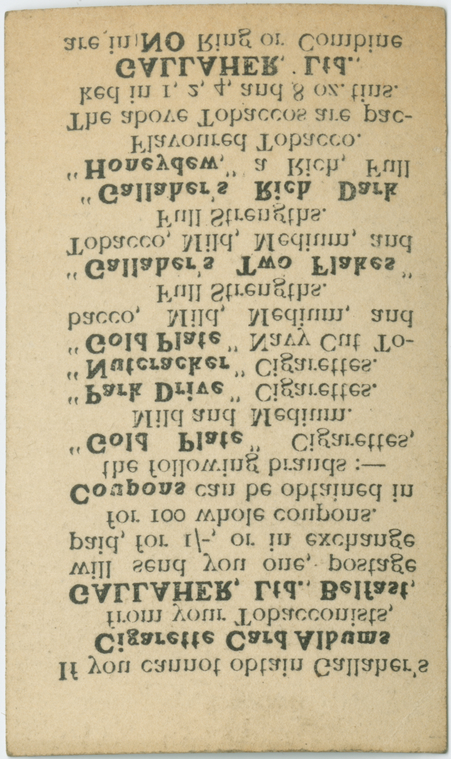 If you cannot obtain Gallaher's
Cigarette Card Albums
from your Tobacconists,
GALLAHER, Ltd., Belfast,
will send you one, postage
paid, for 1/-, or in exchange
for 100 whole coupons.
Coupons can be obtained in
the following brands :—
"Gold Plate" Cigarettes,
Mild and Medium.
"Park Drive" Cigarettes.
"Nutcracker" Cigarettes.
"Gold Plate" Navy Cut To-
bacco, Mild, Medium, and
Full Strengths.
"Gallaher's Two Flakes"
Tobacco, Mild, Medium, and
Full Strengths.
"Gallaher's Rich Dark
Honeydew," a Rich, Full
Flavoured Tobacco.
The above Tobaccos are pac-
ked in 1, 2, 4, and 8 oz. tins.
GALLAHER, Ltd.,
are in NO Ring or Combine